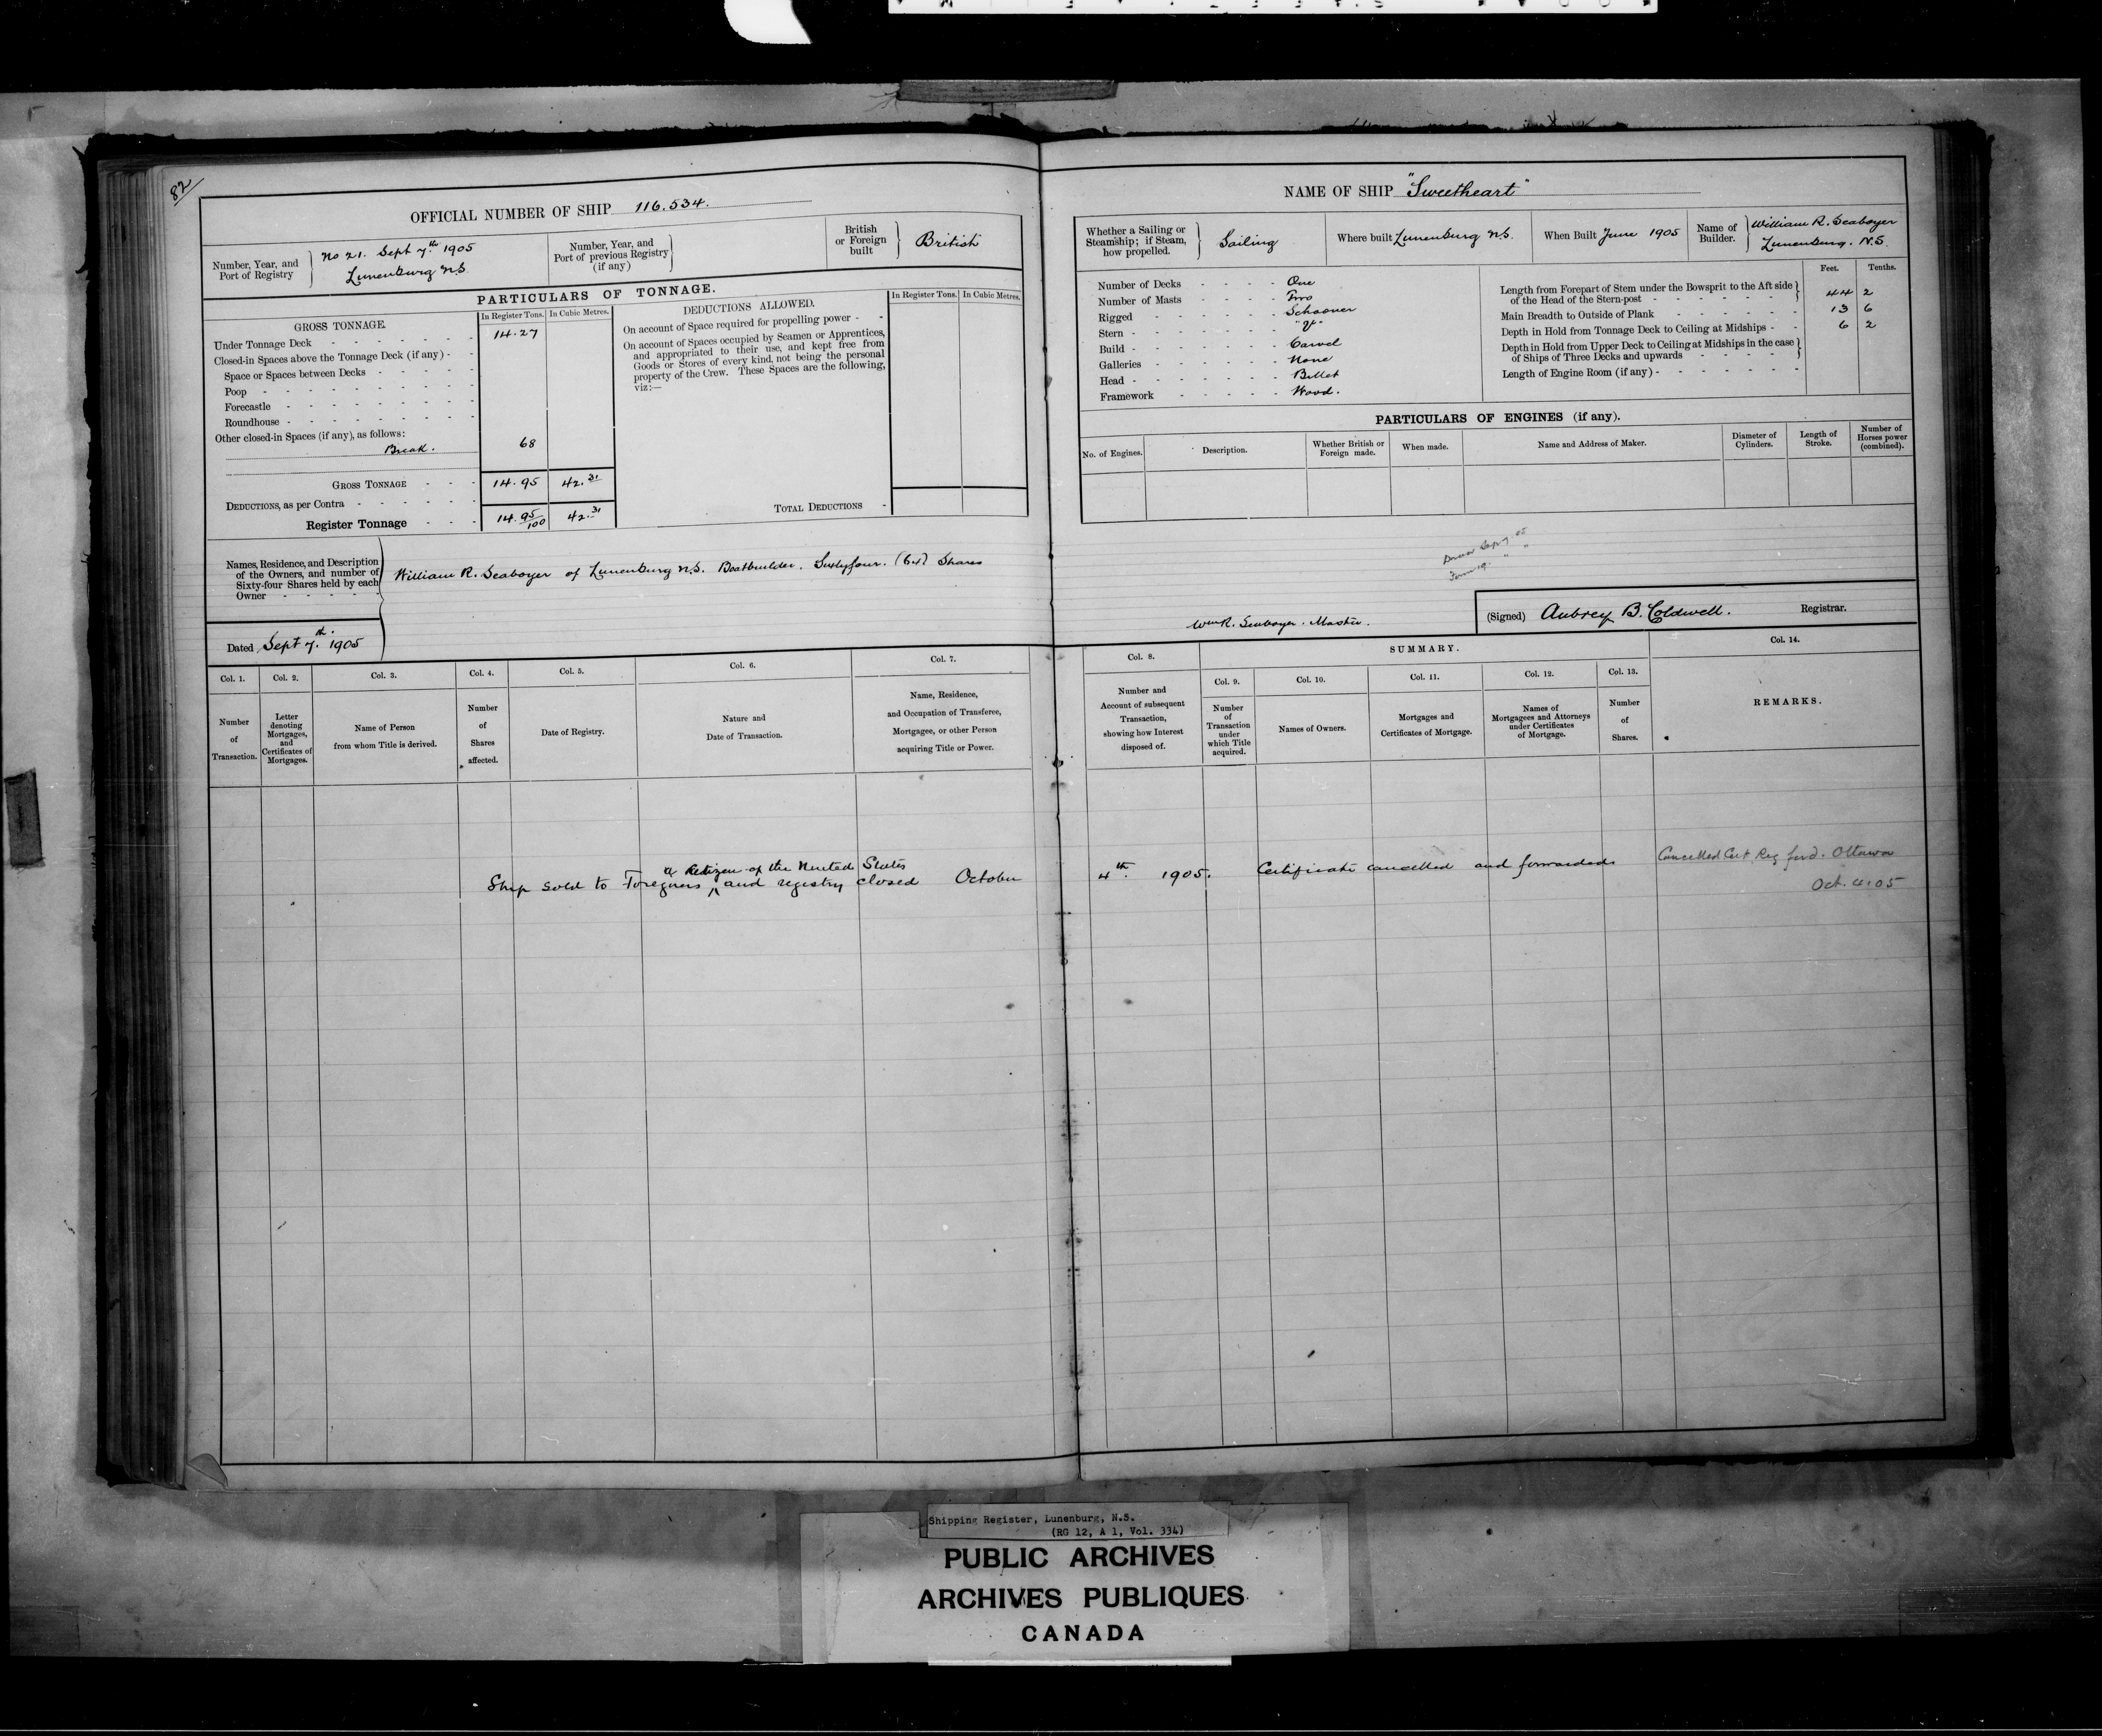 82
OFFICIAL NUMBER OF SHIP 116.534.
Number, Year, and Port of Registry
No 21. Sept 7th 1905
Lunenburg N.S.
Number, Year, and Port of previous Registry (if any)
British or Foreign built
British
PARTICULARS OF TONNAGE.
GROSS TONNAGE.
In Register Tons. In Cubic Metres.
Under Tonnage Deck 14.27
Closed-in Spaces above the Tonnage Deck (if any)
Space or Spaces between Decks
Poop
Forecastle
Roundhouse
Other closed-in Spaces (if any), as follows:
Break. 68
GROSS TONNAGE 14.95 42.31
DEDUCTIONS, as per Contra
Register Tonnage 14.95/100 42.31
DEDUCTIONS ALLOWED.
In Register Tons. In Cubic Metres.
On account of Space required for propelling power
On account of Spaces occupied by Seamen or Apprentices,
and appropriated to their use, and kept free from
Goods or Stores of every kind, not being the personal
property of the Crew. These Spaces are the following,
viz:—
TOTAL DEDUCTIONS
Names, Residence, and Description
of the Owners, and number of
Sixty-four Shares held by each
Owner
William R. Seaboyer of Lunenburg N.S. Boatbuilder. Sixtyfour. (64) Shares
Dated Sept 7th. 1905
Col. 1. Number of Transaction.
Col. 2. Letter denoting Mortgages, and Certificates of Mortgages.
Col. 3. Name of Person from whom Title is derived.
Col. 4. Number of Shares affected.
Col. 5. Date of Registry.
Col. 6. Nature and Date of Transaction.
Col. 7. Name, Residence, and Occupation of Transferee, Mortgagee, or other Person acquiring Title or Power.
a Citizen of the United States
Ship sold to Foreigners ‸ and registry closed October
NAME OF SHIP "Sweetheart"
Whether a Sailing or Steamship; if Steam, how propelled.
Sailing
Where built Lunenburg N.S.
When Built June 1905
Name of Builder.
William R. Seaboyer
Lunenburg. N.S.
Number of Decks One
Number of Masts Two
Rigged Schooner
Stern "V"
Build Carvel
Galleries None
Head Billet
Framework Wood.
Feet. Tenths.
Length from Forepart of Stem under the Bowsprit to the Aft side
of the Head of the Stern-post 44 2
Main Breadth to Outside of Plank 13 6
Depth in Hold from Tonnage Deck to Ceiling at Midships 6 2
Depth in Hold from Upper Deck to Ceiling at Midships in the case
of Ships of Three Decks and upwards
Length of Engine Room (if any)
PARTICULARS OF ENGINES (if any).
No. of Engines.
Description.
Whether British or Foreign made.
When made.
Name and Address of Maker.
Diameter of Cylinders.
Length of Stroke.
Number of Horses power (combined).
Wm R. Seaboyer. Master.
(Signed) Aubrey B. Coldwell. Registrar.
Col. 8. Number and Account of subsequent Transaction, showing how Interest disposed of.
SUMMARY.
Col. 9. Number of Transaction under which Title acquired.
Col. 10. Names of Owners.
Col. 11. Mortgages and Certificates of Mortgage.
Col. 12. Names of Mortgagees and Attorneys under Certificates of Mortgage.
Col. 13. Number of Shares.
Col. 14.
REMARKS.
4th. 1905. Certificate cancelled and forwarded
Cancelled Cert Reg ford. Ottawa
Oct. 4.05
Shipping Register, Lunenburg, N.S.
(RG 12, A 1, Vol. 334)
PUBLIC ARCHIVES
ARCHIVES PUBLIQUES
CANADA